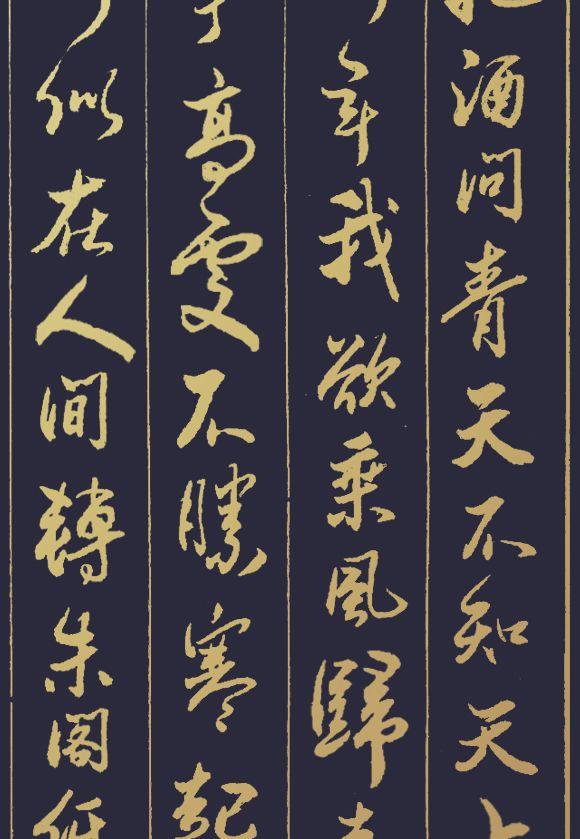 酒問青天不知天
年我欲乘風歸
高處不勝寒起
似在人間轉朱閣低